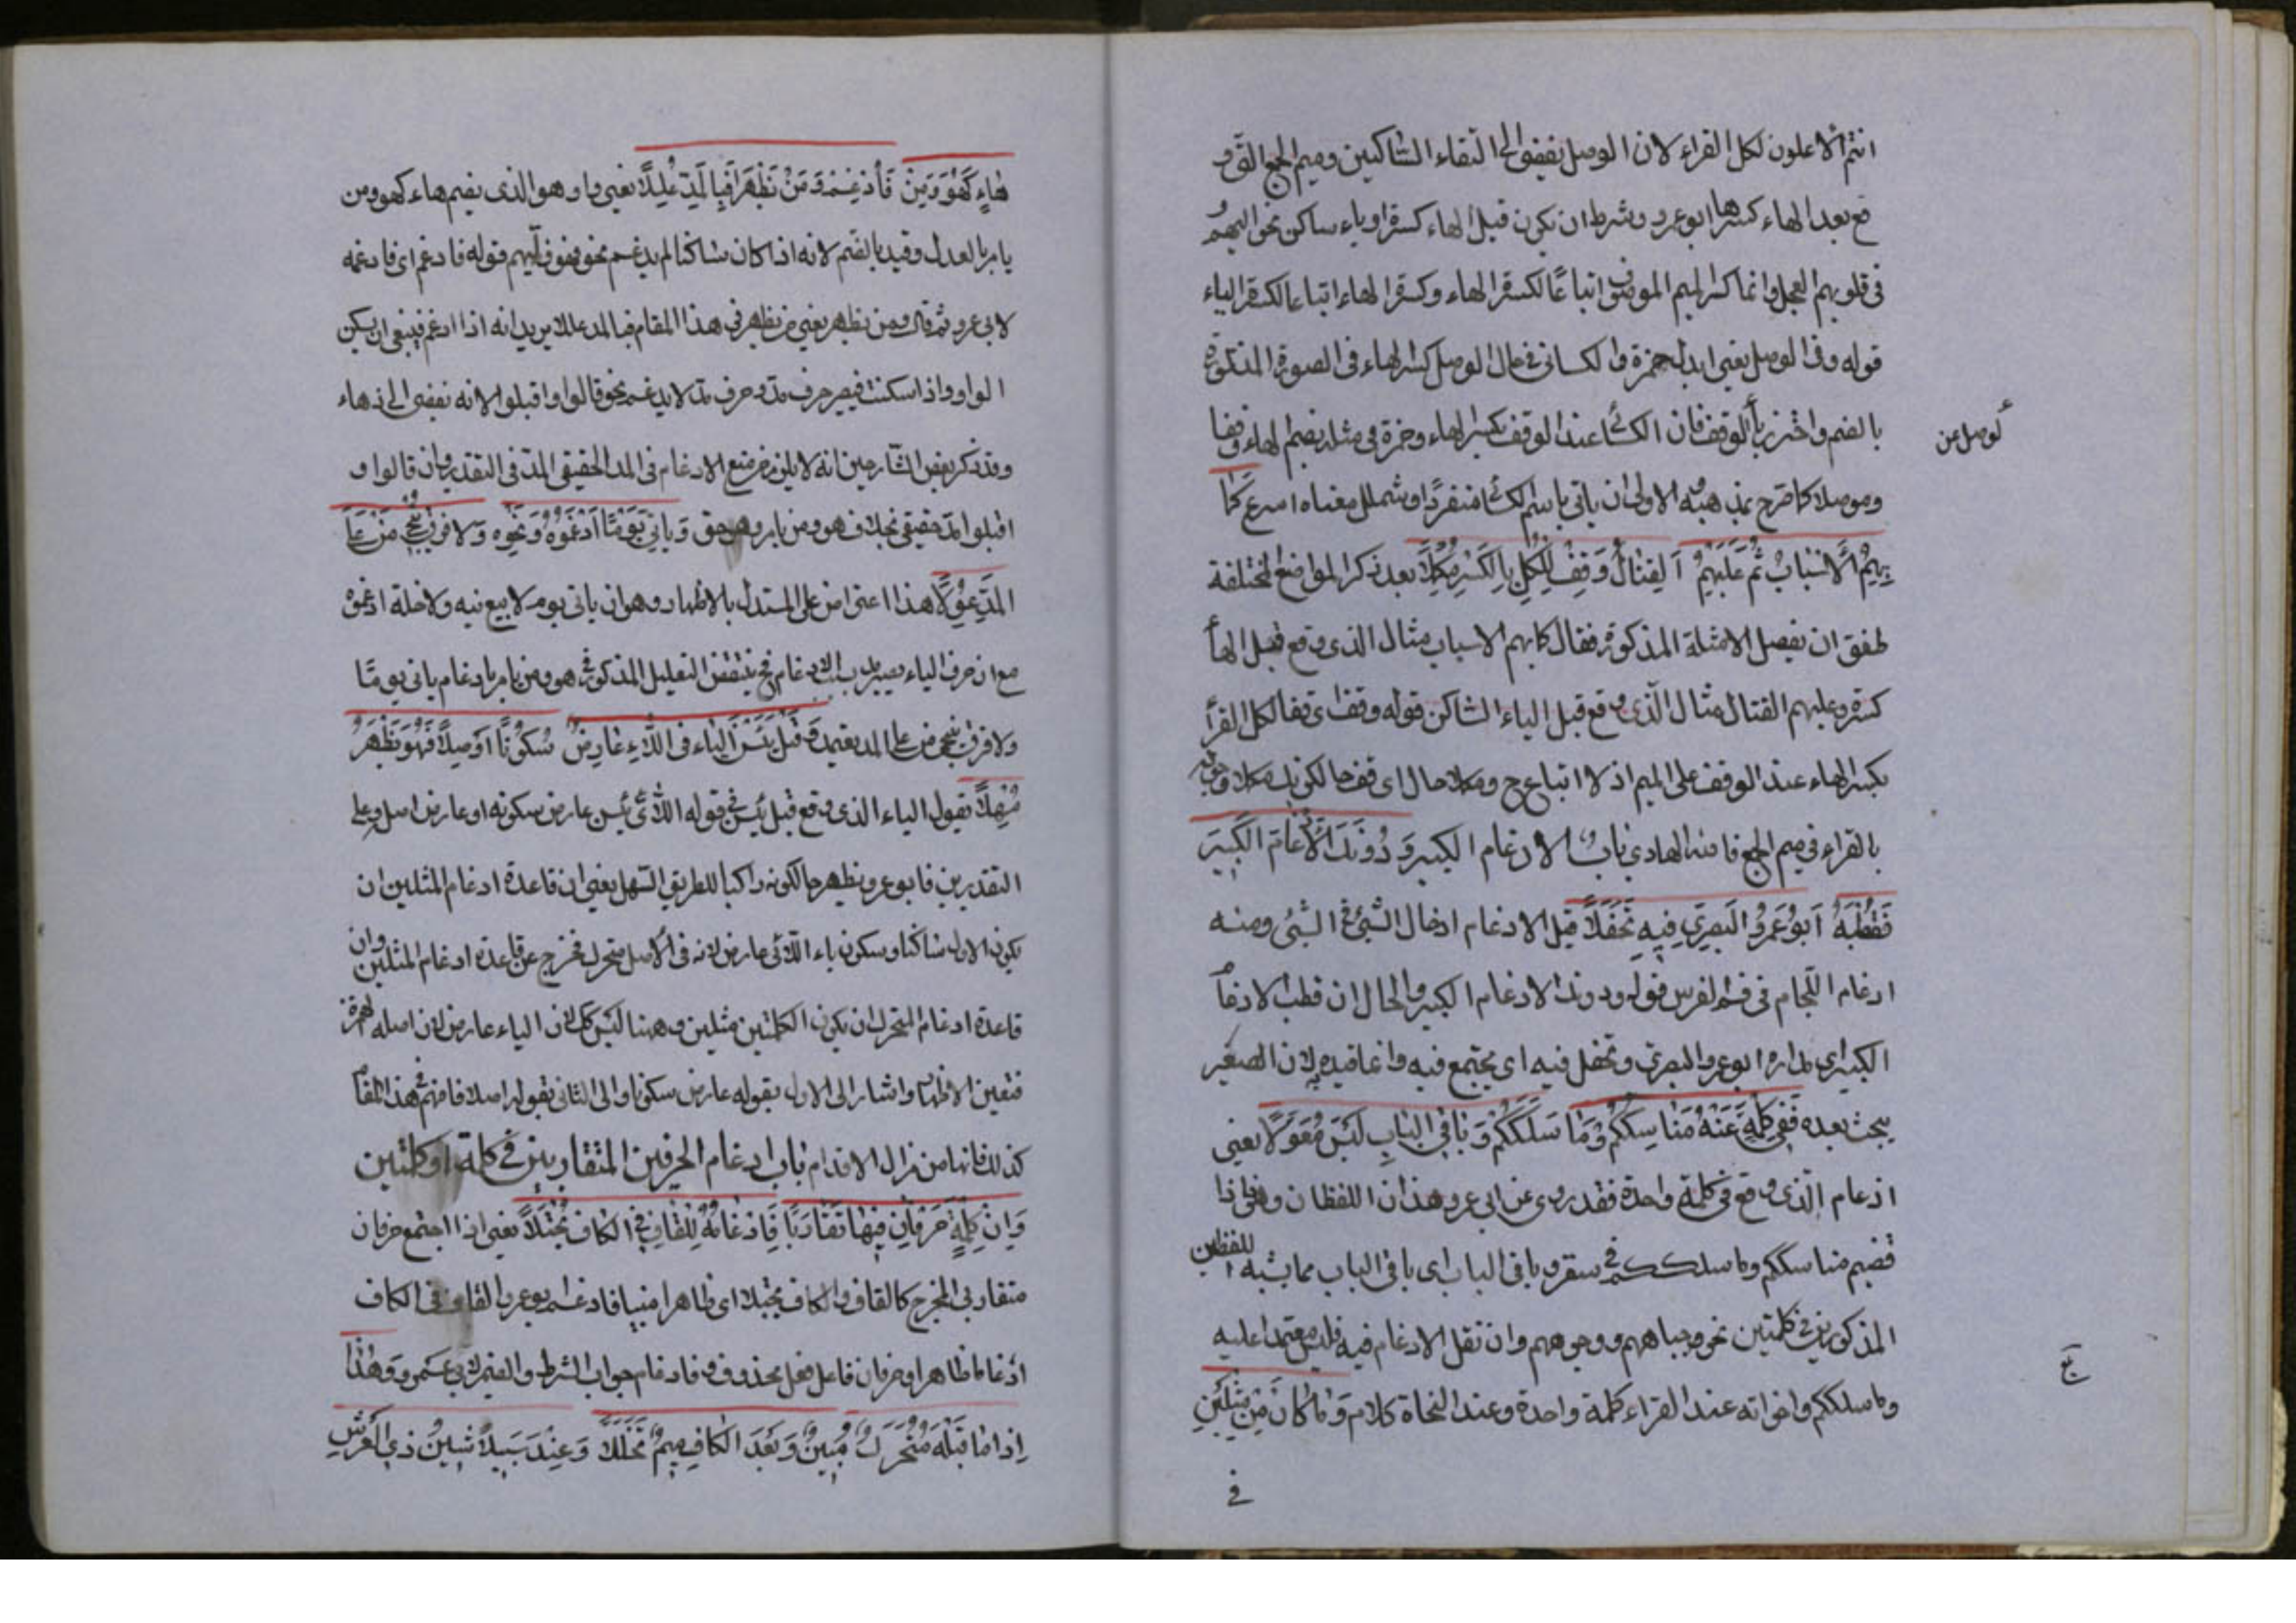 انتم الاعلون لكل القراء لان الوصل يفضي الى التقاء الساكنين وميم الجمع التي و
قع بعد الهاء كسرها ابو عمرو وشرط ان يكون قبل الهاء كسرة او ياء ساكن نحو اليهم
في قلوبهم العجل وانما كسر الميم اتباعًا لكسرة الهاء وكسرة الهاء اتباعا لكسرة الياء
قوله وفي الوصل يعني ابدل حمزة والكسائي في حال الوصل كسر الهاء في الصورة المذكورة
بالضم واحترز بالوقف فان الكسائي عند الوقف بكسر الهاء وحمزة في مثله بضم الهاء وقفا
لوصل عن
وموصلا كما صرح بمذهبه الاولى ان ياتي باسم الكسائي منفردًا وشملل معناه اسرع كما
بِهِمُ الْاَسْبَابُ ثُمَّ عَلَيْهِمُ الْقِتَالُ وَقِفْ لِلْكُلِّ بِالْكَسْرِ مُكْمِلًا بعد ذكر المواضع المختلفة
طفق ان يفصل الامثلة المذكورة فقال كما بهم الاسباب مثال الذي وقع قبل الها
كسرة وعليهم القتال مثال الذي وقع قبل الياء الساكن قوله وقف اي قفا لكل القرأ
بكسر الهاء عند الوقف على الميم اذ لا اتباع ح ومكملا حال اي قف حالكونك مكملا
بالقراء في ميم الجمع فاضه الهادي باب الادغام الكبير وَدُونَكَ الْاِدْغَامَ الْكَبِيرَ
فَقُطْبُهُ اَبُو عَمْرٍو الْبَصْرِيُّ فِيهِ تَحَفَّلًا قيل الادغام ادخال الشيء في الشيء ومنه
ادغام اللجام في فم الفرس قوله ودونك الادغام الكبير والحال ان قطب الادغا
الكبير اي مداره ابو عمرو البصري وتحفل فيه اي يجتمع فيه وانما قيده لان الصغير
يبحث بعده فَفِي كِلْمَةٍ عَنْهُ مَنَاسِكَكُمْ وَمَا سَلَكَكُمْ وَبَاقِي الْبَابِ لَيْسَ مُعَوَّلًا يعني
ادغام الذي وقع في كلمة واحدة فقد روي عن ابي عمرو هذان اللفظان وهي فاذا
قضيتم مناسككم وما سلككم في سقر وباقي الباب اي باقي الباب مما يشبه اللفظين
المذكورين في كلمتين نحو جباههم ووجوههم وان نقل الادغام فيه فليس معتمدا عليه
وما سلككم واخواته عند القراء كلمة واحدة وعند النحاة كلام وَمَا كَانَ مِنْ مِثْلَيْنِ
في
هَاءٍ كَهُوَ وَمَنْ فَأَدْغِمْ وَمَنْ يُظْهِرْ فَبِالْمَدِّ عَلَّلَا يعني واو هو الذي بضم هاء كهو ومن
يامر بالعدل وقيد بالضم لانه اذا كان ساكنا لم يدغم نحو فهو وليهم قوله فادغم اي فادغمه
لابي عمرو ثم قال ومن يظهر يعني من يظهر في هذا المقام فبالمد علل يريد انه اذا ادغم فينبغي ان يسكن
الواو واذا اسكنت فيصير حرف مد وحرف مد لا يدغم نحو قالوا واقبلوا لانه يفضي الى ذهاء
وقد ذكر بعض الشارحين انه لا يلزم من منع الادغام في المد الحقيقي المد في التقدير وان قالوا و
اقبلوا مد حقيقي بخلاف هو ومن يامر وهو حق وَيَأْتِيَ يَوْمٌ أَدْغَمُوهُ وَنَحْوَهُ وَلَا فَرْقَ يُنْجِي مَنْ عَلَى
الْمَدِّ عَوَّلَا هذا اعتراض على المستدل بالاظهار وهو ان ياتي يوم لا بيع فيه ولا خلة ادغموه
مع ان حرف الياء يصير مد بسبب الادغام فح ينتقض التعليل المذكور في هو ومن يامر بادغام ياتي يوم
ولا فرق ينجي من على المد يعتمد وَقَبْلَ يَئِسْنَ الْيَاءُ فِي اللَّاءِ عَارِضٌ سُكُونًا اَوْ اَصْلًا فَهُوَ يُظْهِرُ
مُسْهِلًا يقول الياء الذي وقع قبل يئسن في قوله اللائي يئسن عارض سكونه او عارض اصله وعلى
التقديرين فابو عمرو يظهر حالكونه راكبا للطريق السهل يعني ان قاعدة ادغام المثلين ان
يكون الاول ساكنا وسكون ياء اللائي عارض لانه في الاصل متحرك فخرج عن قاعدة ادغام المثلين وان
قاعدة ادغام المتحرك ان يكون الكلمتين مثلين وههنا ليس كك لان الياء عارض لان اصله الهمزة
فتعين الاظهار واشار الى الاول بقوله عارض سكونا والى الثاني بقوله اصلا فافهم في هذا المقا
كذلك فانها من مزال الاقدام باب ادغام الحرفين المتقاربين في كلمة او كلمتين
وَاِنْ كِلْمَةٍ حَرْفَانِ فِيهَا تَقَارَبَا فَاِدْغَامُهُ لِلْقَافِ فِي الْكَافِ مُجْتَلَا يعني اذا اجتمع حرفان
متقاربي المخرج كالقاف والكاف مجتلا اي ظاهرا مبينا فادغم ابو عمرو القاف في الكاف
ادغاما ظاهرا وحرفان فاعل فعل محذوف وفادغام جواب الشرط والضمير لابي عمرو وَهٰذَا
اِذَا مَا قَبْلَهُ مُتَحَرِّكٌ مُبِينٌ وَبَعْدَ الْكَافِ مِيمٌ تَخَلَّلَا وَعِنْدَ سَبِيلًا شِينُ ذِي الْعَرْشِ